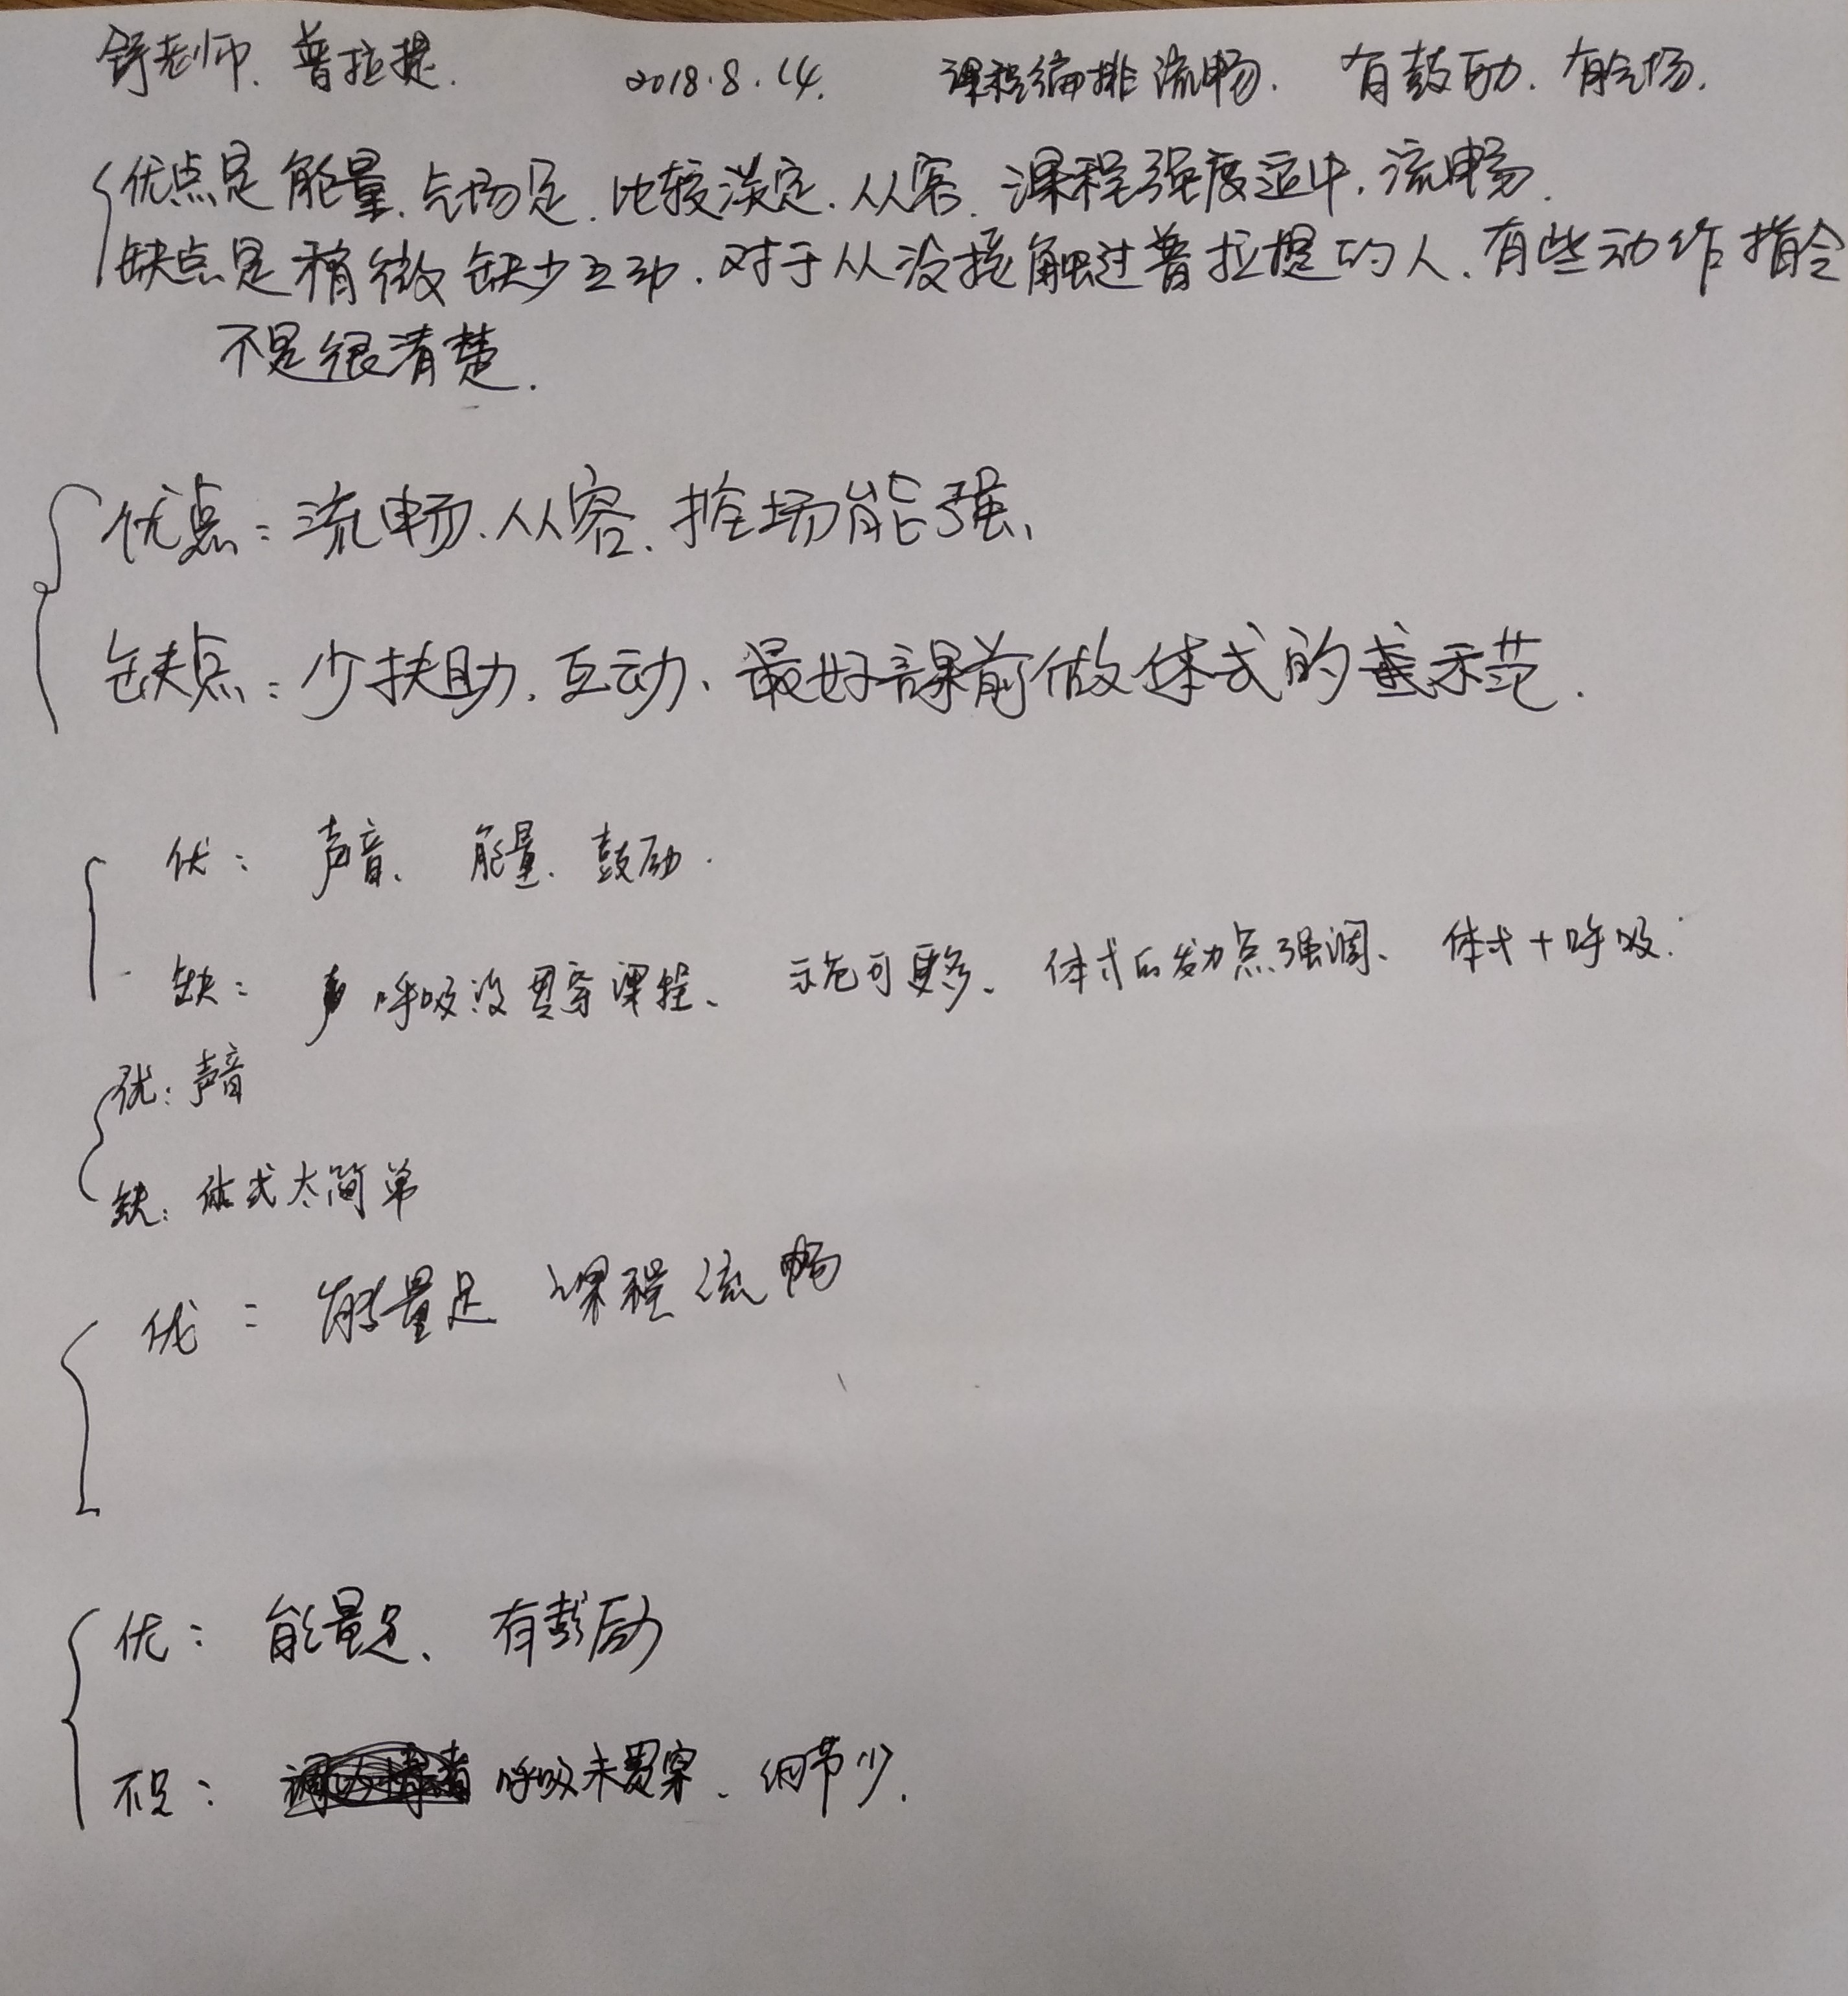 舒老师、普拉提. 2018.8.14. 课程编排流畅. 有鼓励. 有气场.
优点是能量、气场足、比较淡定、从容、课程强度适中, 流畅.
缺点是稍微缺少互动. 对于从没接触过普拉提的人、有些动作指令
不是很清楚.
优点: 流畅、从容、控场能强、
缺点: 少扶助、互动、最好课前做体式的示范.
优: 声音、能量、鼓励.
缺: 呼吸没贯穿课程、示范可更多、体式后发力点强调、体式+呼吸.
优: 声音
缺: 体式太简单
优: 能量足 课程流畅
优: 能量足、有鼓励
不足: 呼吸未贯穿、细节少.